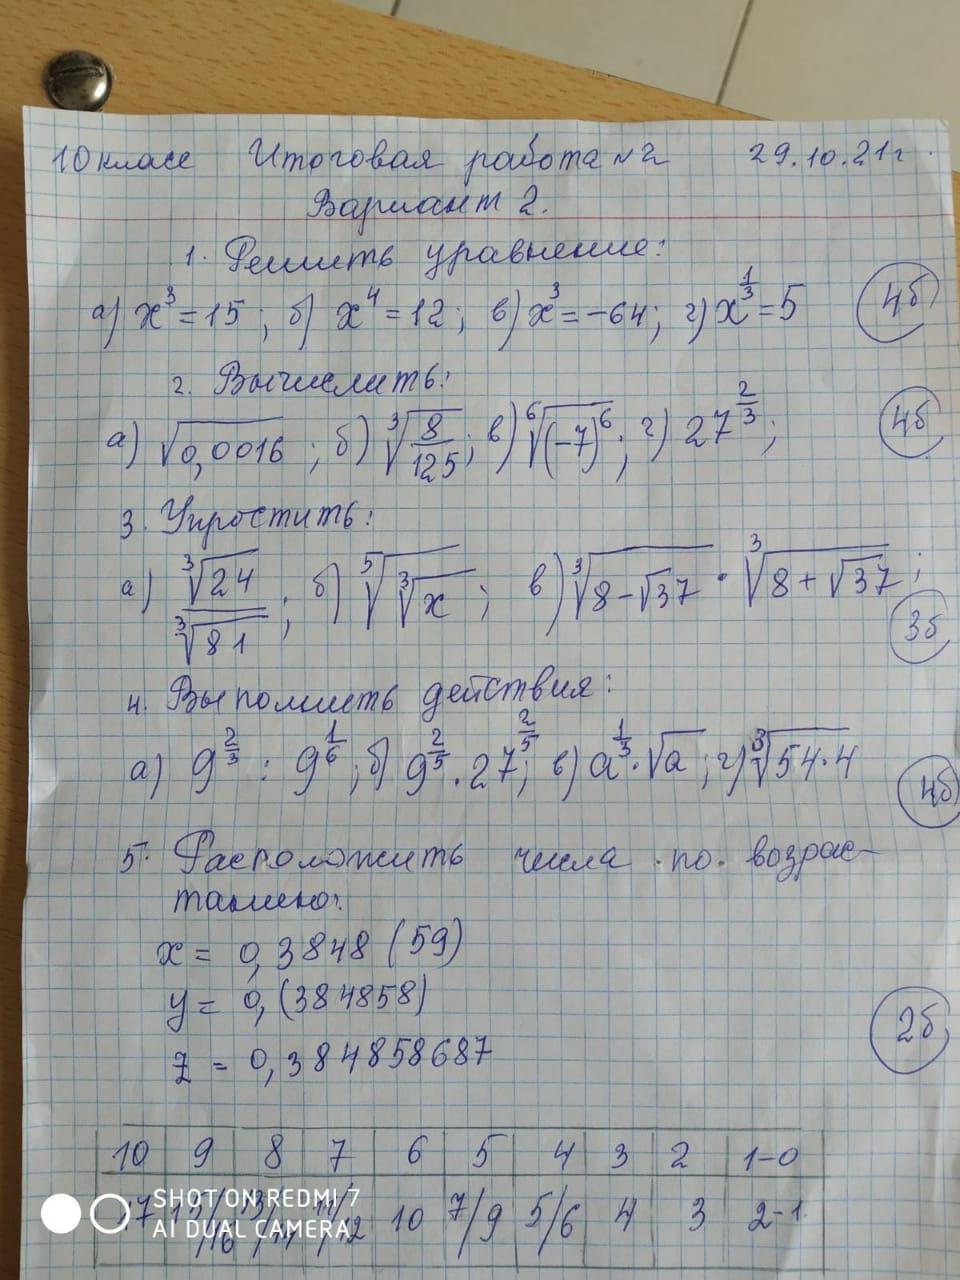 10 класс Итоговая работа №2 29.10.21г.
Вариант 2.
1. Решить уравнение:
а) x³ = 15; б) x⁴ = 12; в) x³ = -64; г) x^(1/3) = 5 4б
2. Вычислить:
а) √0,0016; б) ∛(8/125); в) ⁶√(-7)⁶; г) 27^(2/3); 4б
3. Упростить:
а) ∛24/∛81; б) ⁵√∛x; в) ∛(8-√37) · ∛(8+√37); 3б
4. Выполнить действия:
а) 9^(2/3) : 9^(1/6); б) 9^(2/5) · 27^(2/5); в) a^(1/3) · √a; г) ∛(54·4) 4б
5. Расположить числа по возрас-
танию:
x = 0,3848(59)
y = 0,(384858)
z = 0,384858687 2б
10 9 8 7 6 5 4 3 2 1-0
17 15/16 13/14 11/12 10 7/9 5/6 4 3 2-1
SHOT ON REDMI 7
AI DUAL CAMERA